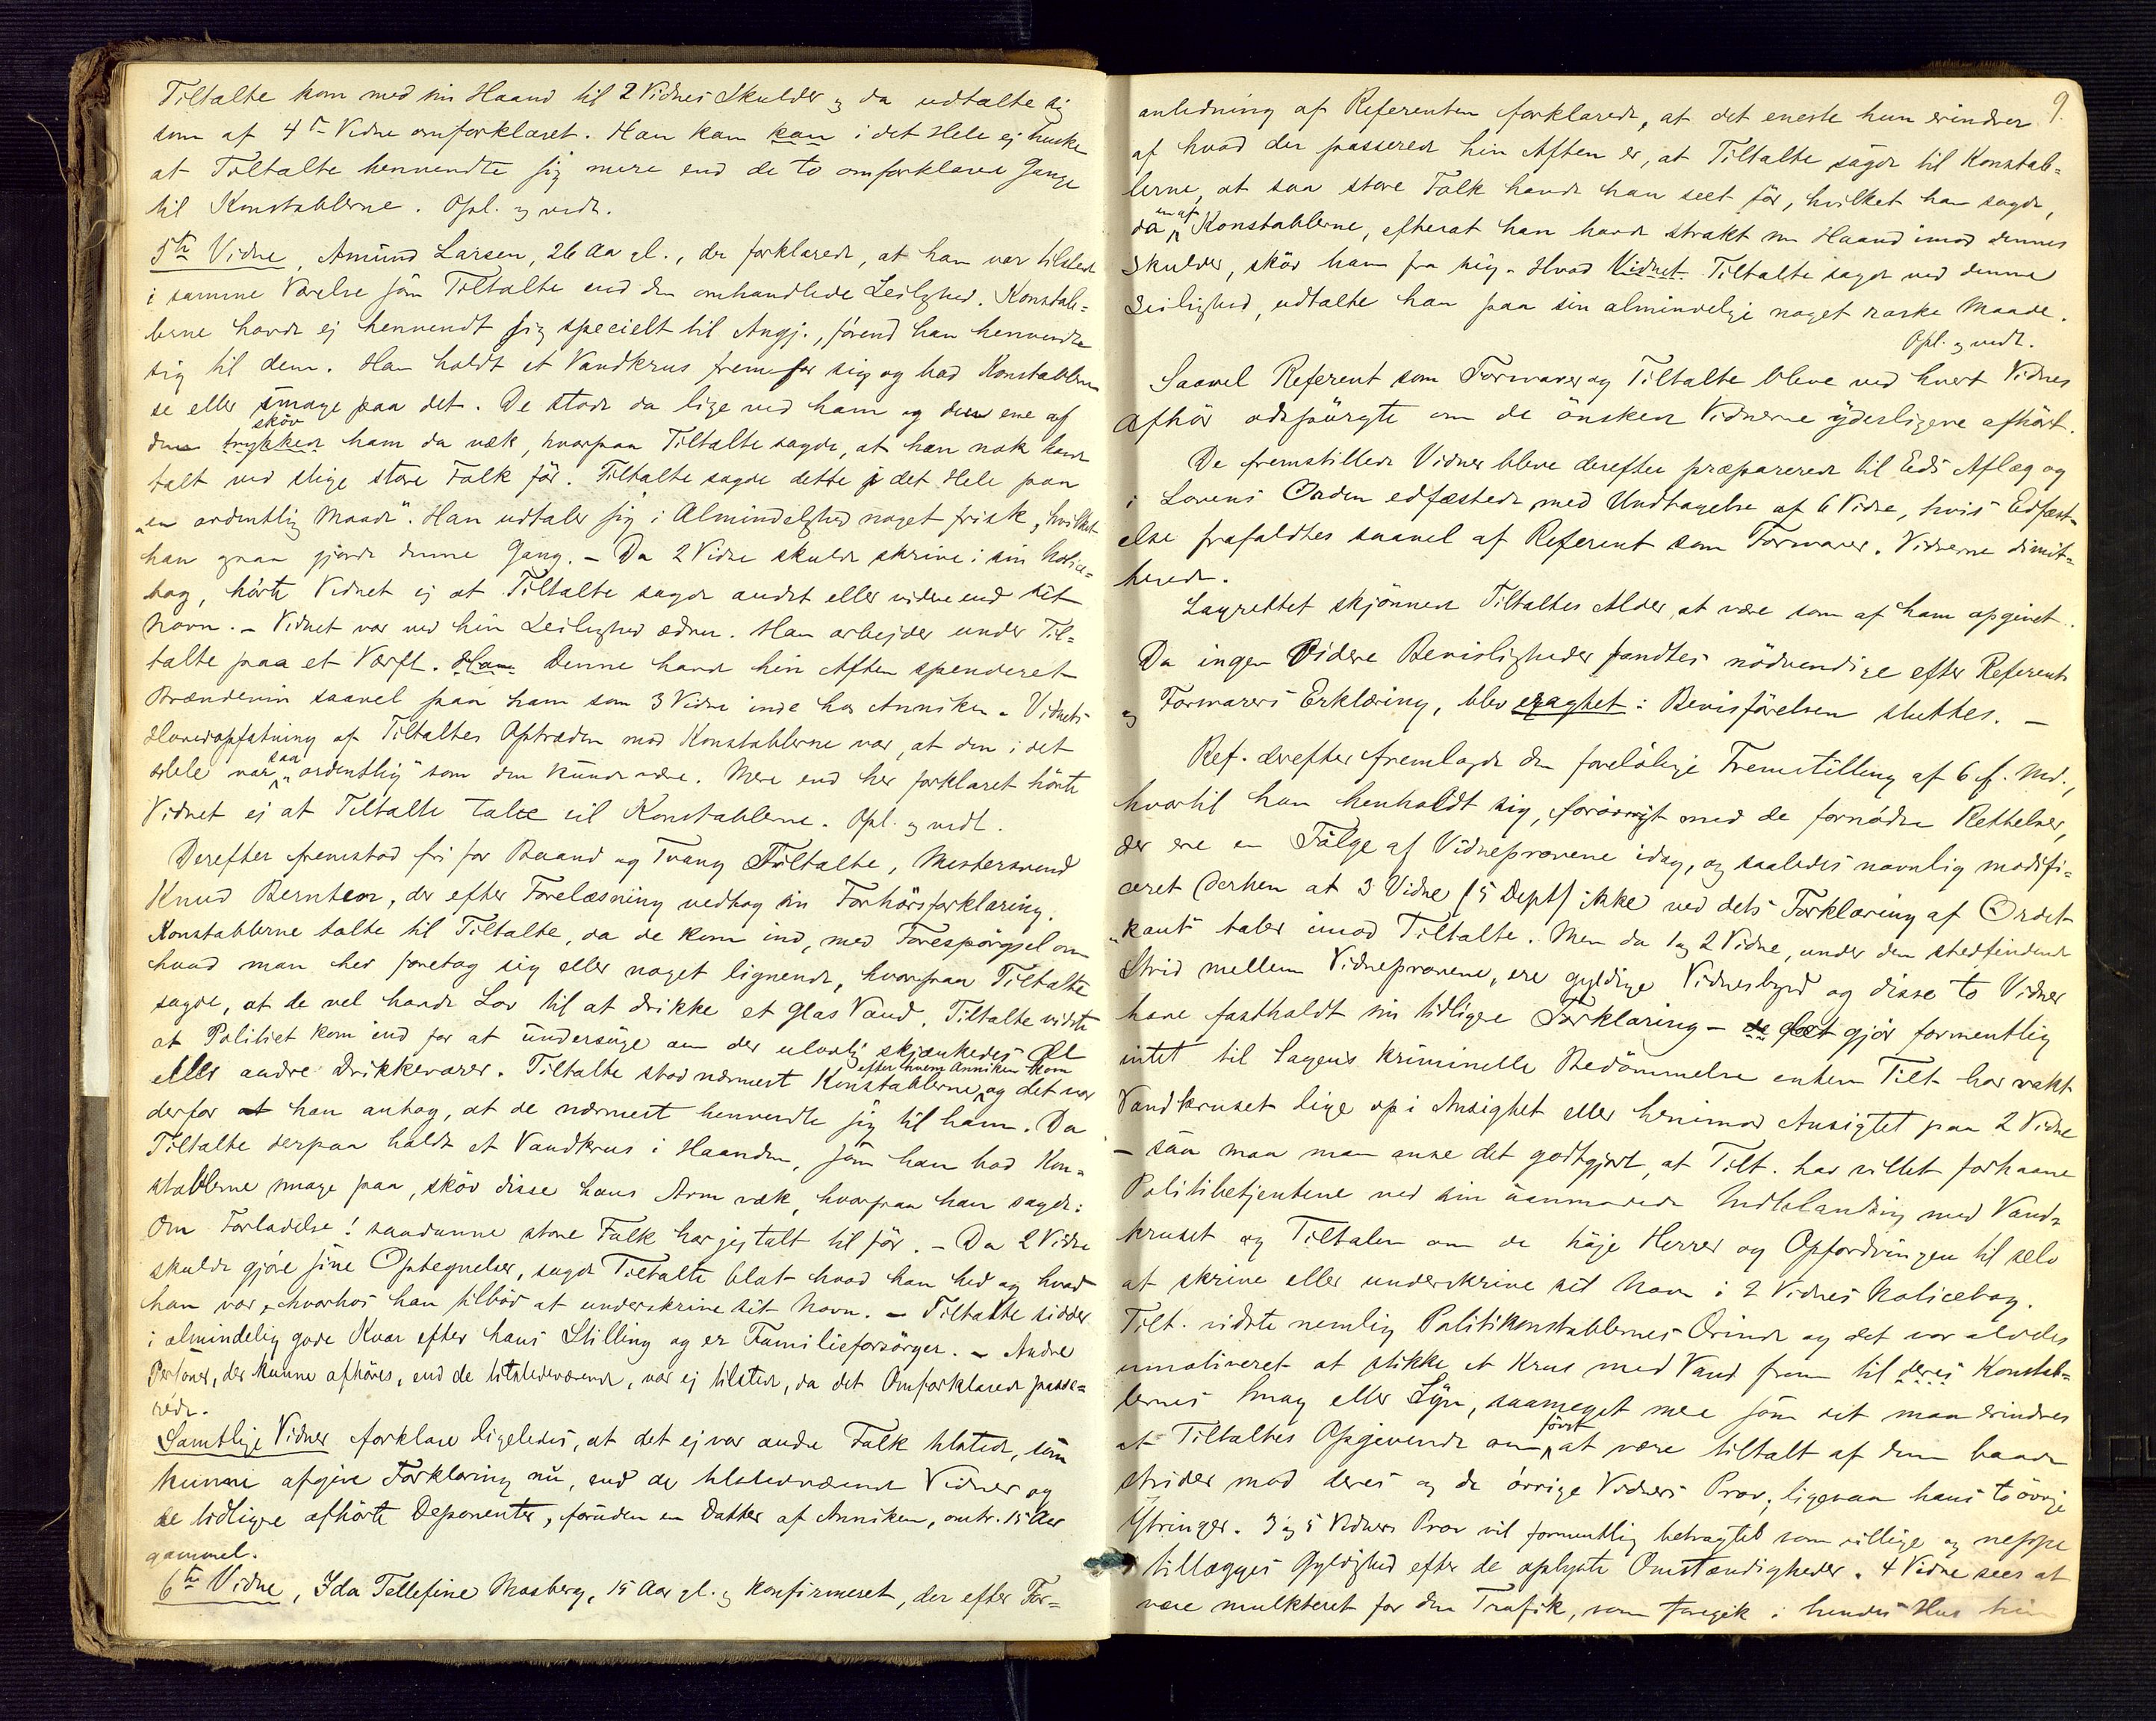 Tiltalte kom med sin Haand til 2 Vidnes Skulder og da udtalte sig
som af 4de Vidne omforklaret. Han kan kan i det Hele ej huske
at Tiltalte henvendte sig mere end de to omforklarede Gange
til Konstablerne. Opl. og vedt.
5te Vidne, Amund Larsen, 26 Aar gl., der forklarede, at han var tilstede
i samme Værelse som Tiltalte ved den omhandlede Leilighed. Konstab-
lerne havde ej henvendt sig specielt til Angj., förend han henvendte
sig til dem. Han holdt et Vandkrus frem for sig og bad Konstablerne
se eller smage paa det. De stode da lige ved ham og den ene af
dem trykkede sköv ham da væk, hvorpaa Tiltalte sagde, at han nok havde
talt ved slige store Folk för. Tiltalte sagde dette i det Hele paa
"en ordentlig Maade". Han udtaler sig i Almindelighed noget frisk, hvilket
han ogsaa gjorde denne Gang. - Da 2 Vidne skulde skrive i sin Notice-
bog, hörte Vidnet ej at Tiltalte sagde andet eller videre end sit
Navn. - Vidnet var ved hin Leilighed ædru. Han arbejder under Til-
talte paa et Værft. Han Denne havde hin Aften spenderet
Brændeviin saavel paa ham som 3 Vidne inde hos Anniken. Vidnets
Hovedopfatning af Tiltaltes Optræden mod Konstablerne var, at den i det
Hele var saa "ordentlig" som den kunde være. Mere end her forklaret hörte
Vidnet ej at Tiltalte talte til Konstablerne. Opl. og vedt.
Derefter fremstod fri for Baand og Tvang Tiltalte, Mestersvend
Knud Berntsen, der efter Forelæsning vedtog sin Forhörsforklaring.
Konstablerne talte til Tiltalte, da de kom ind, med Forespörgsel om
hvad man her foretog sig eller noget lignende, hvorpaa Tiltalte
sagde, at de vel havde Lov til at drikke et Glas Vand. Tiltalte vidste
at Politiet kom ind for at undersöge om der ulovlig skjænkedes Öl
eller andre Drikkevarer. Tiltalte stod nærmest Konstablerne efter hvem Anniken kom og det var
derfor at han antog, at de nærmest henvendte sig til ham. Da
Tiltalte derpaa holdt et Vandkrus i Haanden, som han bad Kon-
stablerne smage paa, sköv disse hans Arm væk, hvorpaa han sagde:
Om Forladelse! saadanne store Folk har jeg talt til för. - Da 2 Vidne
skulde gjöre sine Optegnelser, sagde Tiltalte blot hvad han hed og hvad
han var, hvorhos han tilböd at underskrive sit Navn. - Tiltalte sidder
i almindelig gode Kaar efter hans Stilling og er Familieforsörger. - Andre
Personer, der kunne afhöres, end de tilstedeværende, var ej tilstede, da det Omforklarede passe-
rede.
Samtlige Vidner forklare ligeledes, at det ej var andre Folk tilstede, som
kunne afgive Forklaring nu, end de tilstedeværende Vidner og
de tidligere afhörte Deponenter, foruden en Datter af Anniken, omtr. 15 Aar
gammel.
6te Vidne, Ida Tellefine Mosberg, 15 Aar gl. og konfirmeret, der efter For-
9.
anledning af Referenten forklarede, at det eneste hun erindrer
af hvad der passerede hin Aften er, at Tiltalte sagde til Konstab-
lerne, at saa store Folk havde han seet för, hvilket han sagde,
da en af Konstablerne, efterat han havde strakt sin Haand imod dennes
Skulder, sköv ham fra sig. Hvad Vidnet Tiltalte sagde ved denne
Leilighed, udtalte han paa sin almindelige noget raske Maade.
Opl. og vedt.
Saavel Referent som Forsvarer og Tiltalte bleve ved hvert Vidnes
Afhör adspurgte om de önskede Vidnerne yderligere afhört.
De fremstillede Vidner bleve derefter præparerede til Eds Aflæg og
i Lovens Orden edfæstede med Undtagelse af 6 Vidne, hvis Edfæst-
else frafaldtes saavel af Referent som Forsvarer. Vidnerne dimit-
terede.
Lagrettet skjönnede Tiltaltes Alder, at være som af ham opgivet.
Da ingen Videre Bevisligheder fandtes nödvendige efter Referents
og Forsvarers Erklæring, blev eragtet: Bevisförelsen sluttes. -
Ref. derefter fremlagde den forelöbige Fremstilling af 6 f. Md.,
hvortil han henholdt sig, forövrigt med de fornödne Rettelser,
der ere en Fölge af Vidneprovene idag, og saaledes navnlig modifi-
ceret derhen at 3 Vidne (5 Dept) ikke ved dets Forklaring af Ordet
"kaut" taler imod Tiltalte. Men da 1 og 2 Vidne, under den stedfindende
Strid mellem Vidneprovene, ere gyldige Vidnesbyrd og disse to Vidner
have fastholdt sin tidligere Forklaring - de det gjör formentlig
intet til Sagens kriminelle Bedömmelse enten Tilt. har rakt
Vandkruset lige op i Ansigtet eller henimod Ansigtet paa 2 Vidne
- saa maa man anse det godtgjort, at Tilt. har villet forhaane
Politibetjentene ved sin uanmodede Indblanding med Vand-
kruset og Tiltalen om de höje Herrer og Opfordringen til selv
at skrive eller underskrive sit Navn i 2 Vidnes Noticebog.
Tilt. vidste nemlig Politikonstablernes Ærinde og det var aldeles
umotiveret at stikke et Krus med Vand frem til deres Konstab-
lernes Smag eller Syn, saameget mere som det maa erindres
at Tiltaltes Opgivende om först at være tiltalt af dem baade
strider mod deres og de övrige Vidners Prov, ligesaa hans to övrige
Ytringer. 3 og 5 Vidners Prov vil formentlig betragtes som villige og neppe
tillægges Gyldighed efter de oplyste Omstændigheder. 4 Vidne sees at
være mulkteret for den Trafik, som foregik i hendes Hus hin